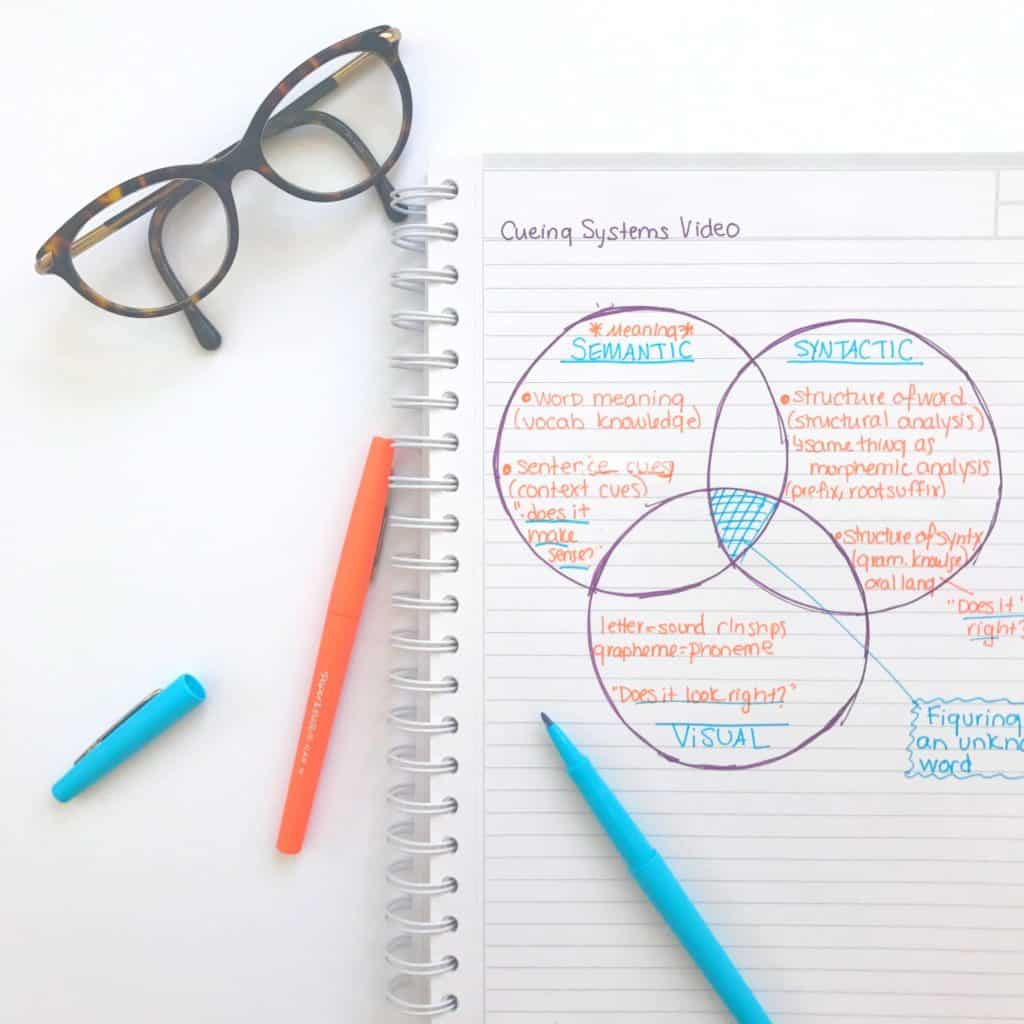 Cueing Systems Video
*Meaning*
SEMANTIC
• word meaning
(vocab knowledge)
• sentence cues
(context cues)
"does it
make
sense?"
SYNTACTIC
• structure of word
(structural analysis)
↳ same thing as
morphemic analysis
(prefix, root suffix)
• structure of
(gram.
oral lang
"Does it
right?
letter=sound rlnshps
grapheme=phoneme
"Does it look right?"
VISUAL
Figuring
an
word